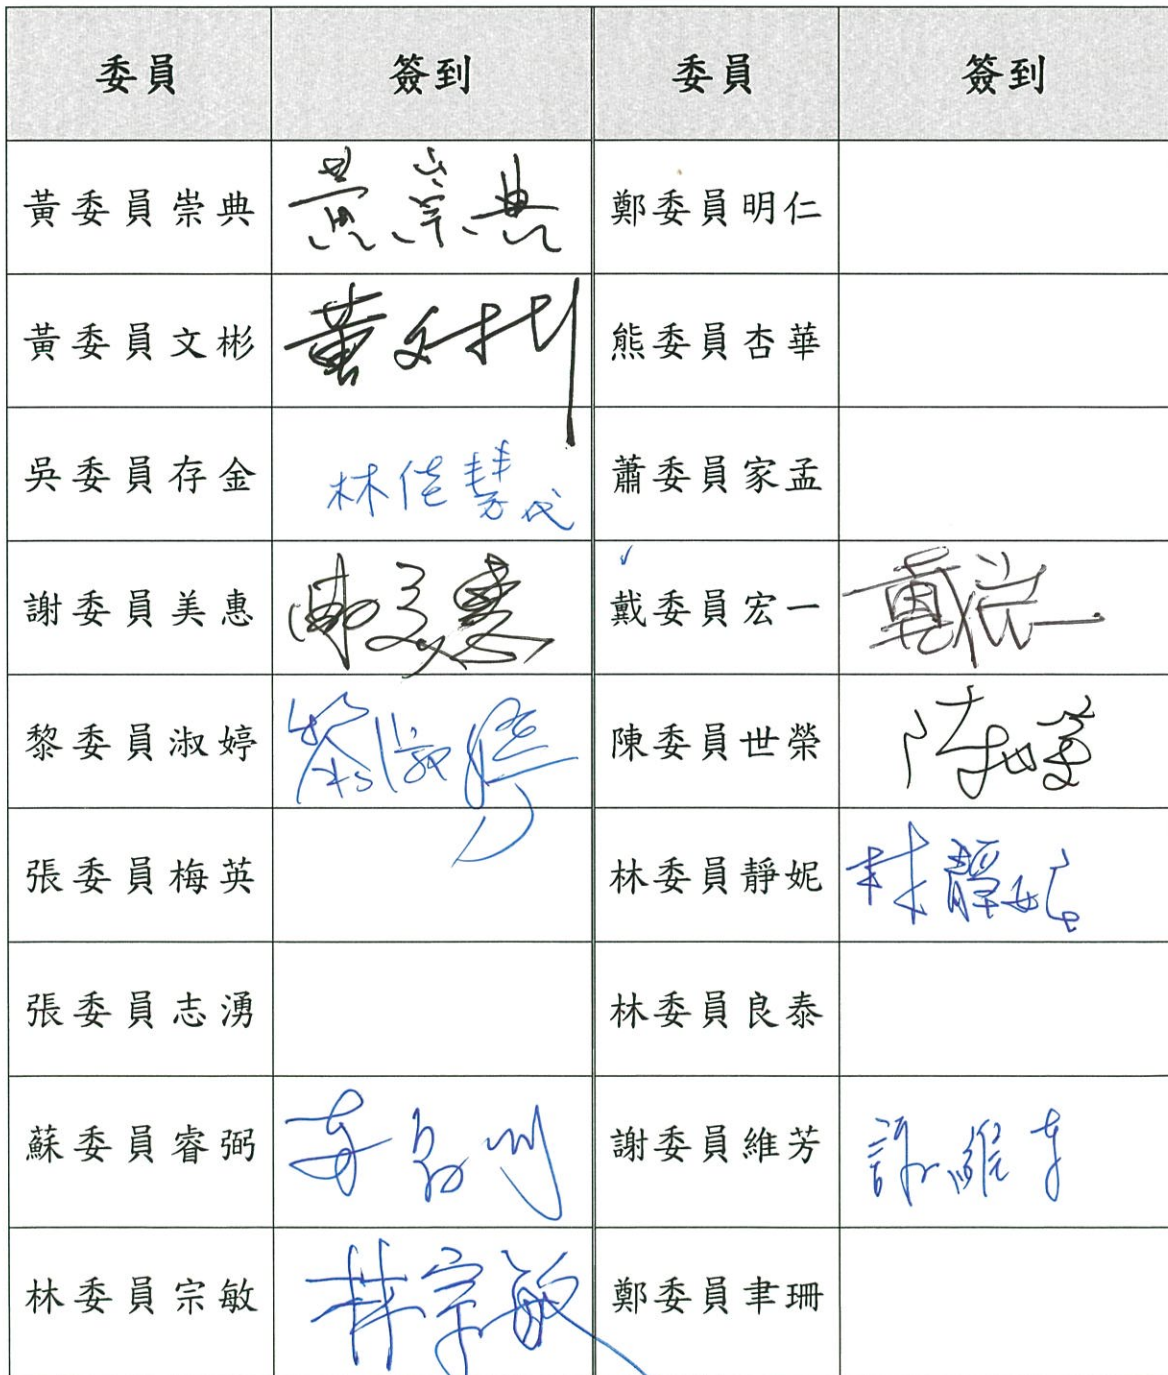 委員 簽到 委員 簽到
黃委員崇典 黃崇典 鄭委員明仁
黃委員文彬 黃文彬 熊委員杏華
吳委員存金 林佳慧代 蕭委員家孟
謝委員美惠 謝美惠 戴委員宏一 戴宏一
黎委員淑婷 黎淑婷 陳委員世榮 陳世榮
張委員梅英 林委員靜妮 林靜妮
張委員志湧 林委員良泰
蘇委員睿弼 謝委員維芳 謝維芳
林委員宗敏 林宗敏 鄭委員聿珊